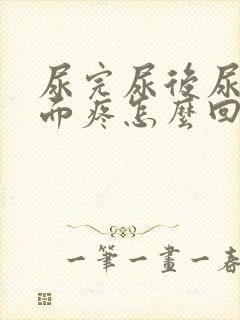 尿完尿後尿
而疼怎麼回
一筆一畫一春